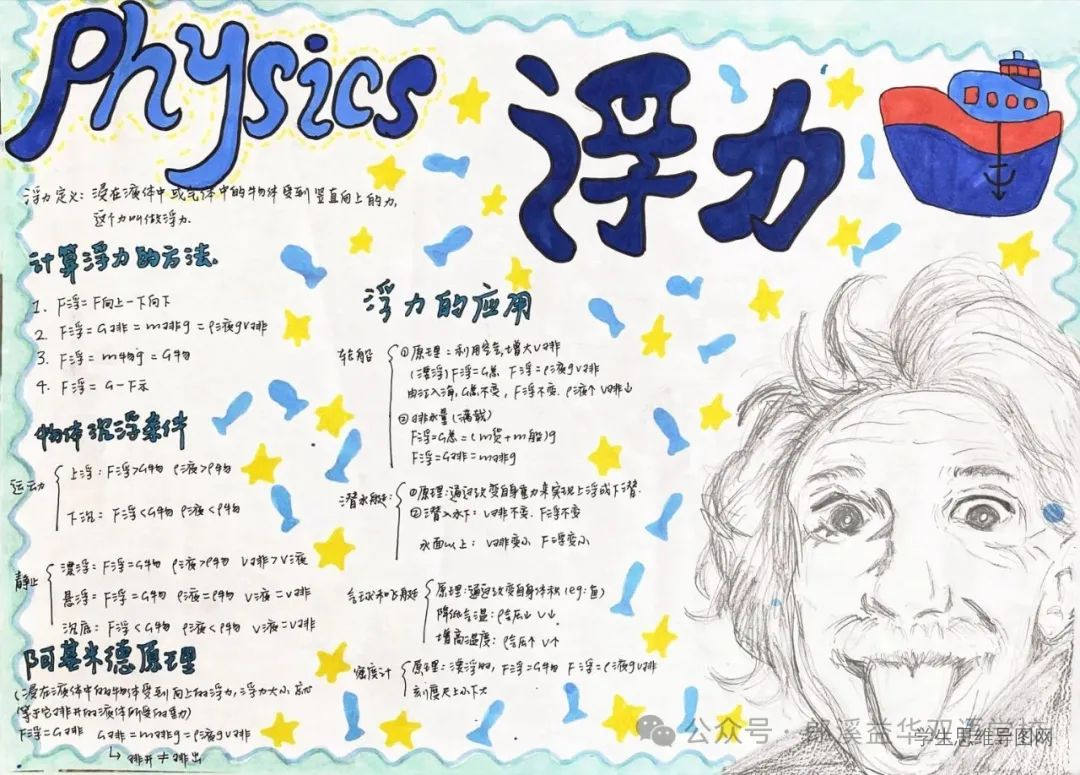 Physics
浮力
浮力定义：浸在液体中或气体中的物体受到竖直向上的力，
这个力叫做浮力．
计算浮力的方法．
1. F浮=F向上-F向下
2. F浮=G排=m排g=ρ液gV排
3. F浮=m物g=G物
4. F浮=G-F示
物体沉浮条件
运动
上浮：F浮>G物 ρ液>ρ物
下沉：F浮<G物 ρ液<ρ物
静止
漂浮：F浮=G物 ρ液>ρ物
悬浮：F浮=G物 ρ液=ρ物 V液=V排
沉底：F浮<G物 ρ液<ρ物 V液=V排
阿基米德原理
(浸在液体中的物体受到向上的浮力，浮力大小
等于它排开的液体所受的重力)
F浮=G排 G排=m排g=ρ液gV排
↳ 排开≠排出
浮力的应用
轮船
①原理：利用空气，增大V排
(漂浮)F浮=G总 F浮=ρ液gV排
由江入海，G总不变，F浮不变．ρ液↑ V排↓
②排水量(满载)
F浮=G总=(m货+m船)g
F浮=G排=m排g
潜水艇：
①原理：通过改变自身重力来实现上浮或下潜．
②潜入水下：V排不变．F浮不变
水面以上：V排变小 F浮变小
气球和飞艇
原理：通过改变自身体积(eg：鱼)
降低
增高温度：
密度计
原理：漂浮时，F浮=G物 F浮=ρ液gV排
刻度尺上小下大
公众号·郎溪益华双语学校
学生思维导图网